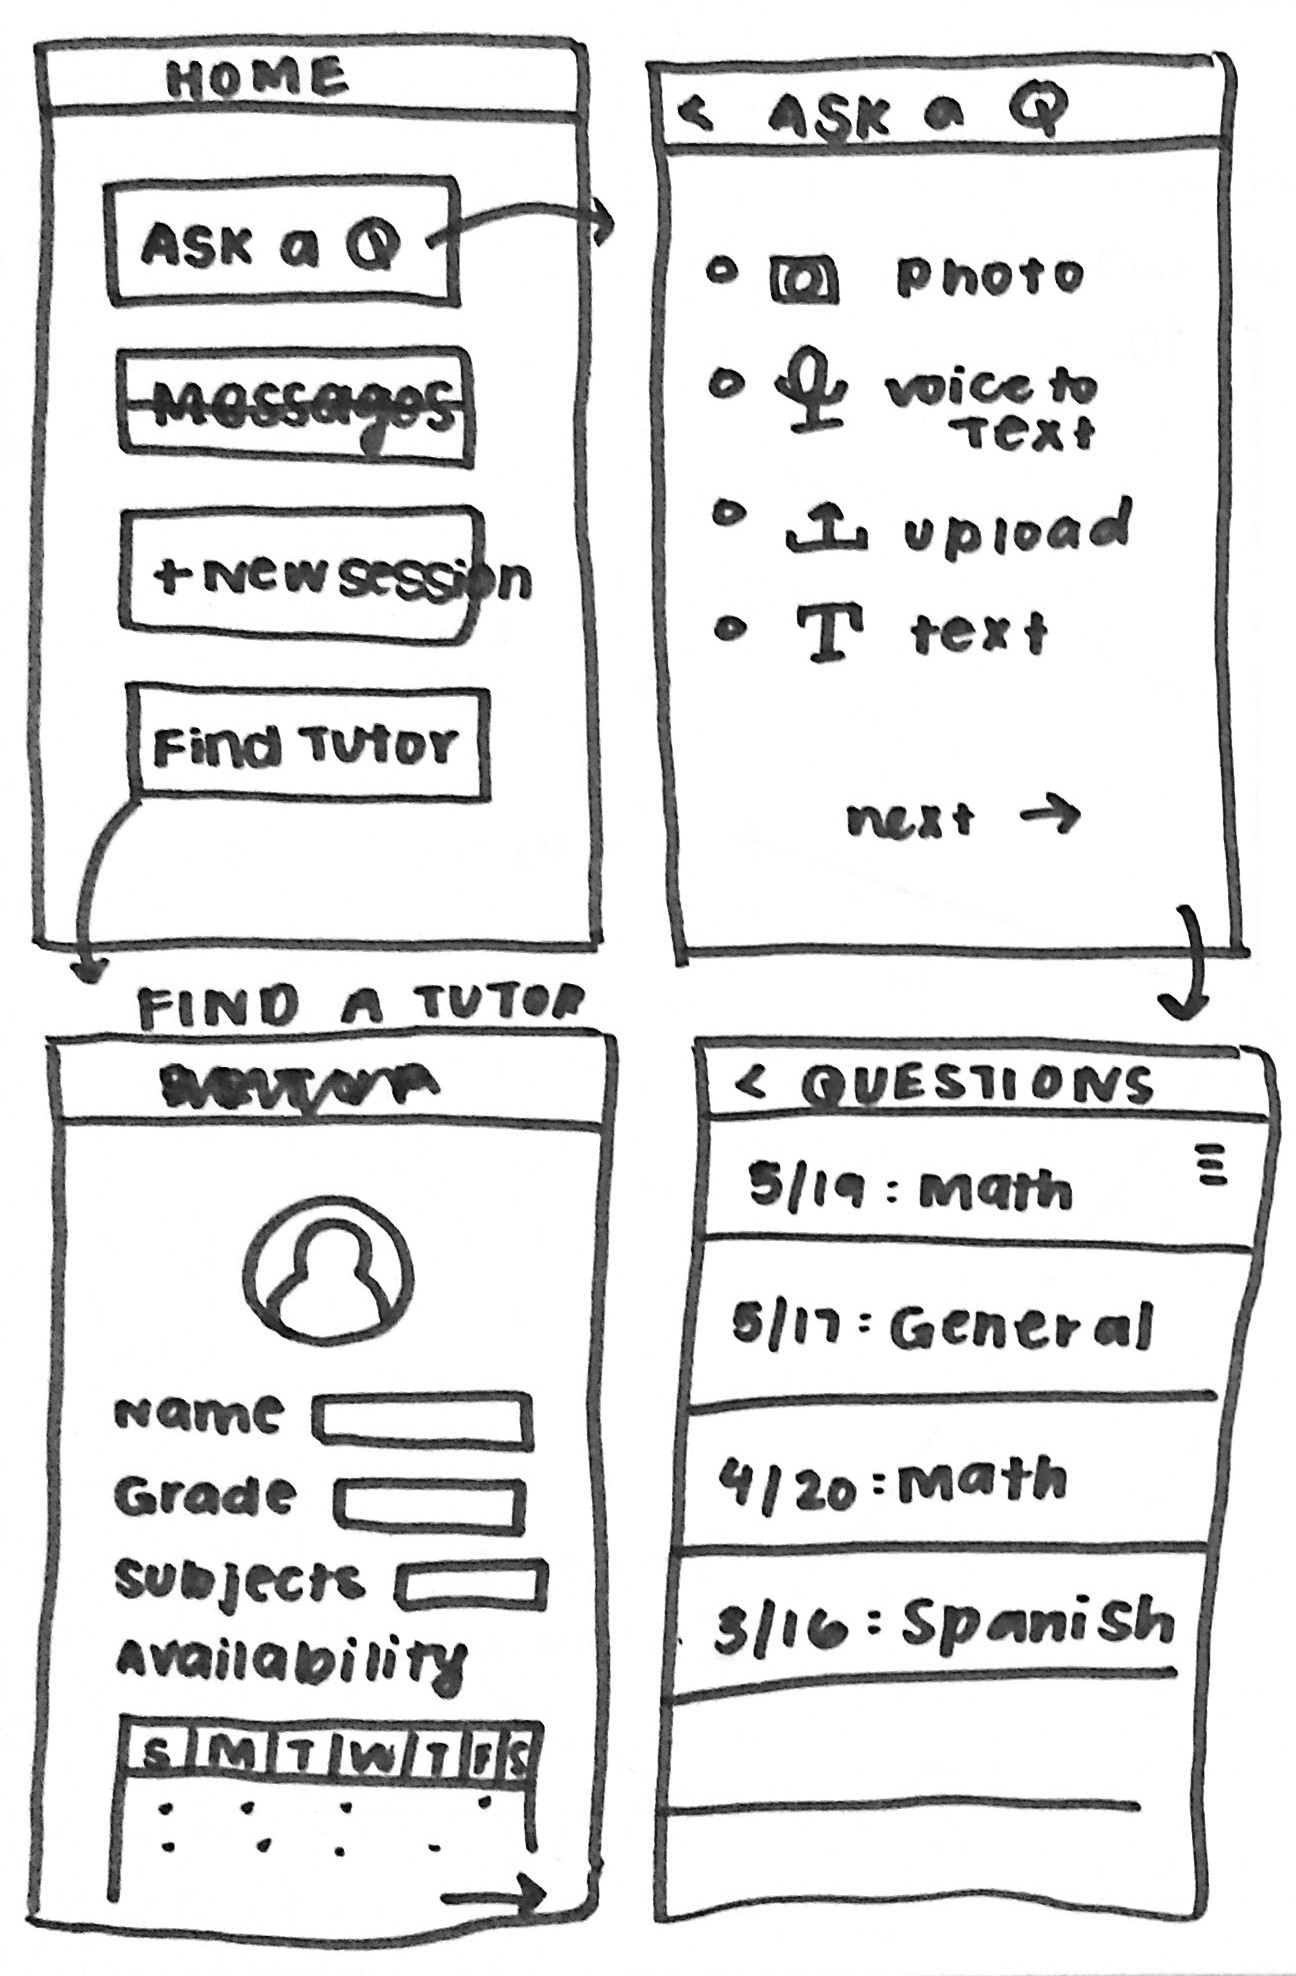 HOME
ASK a Q
Messages
+ New session
Find Tutor
< ASK a Q
photo
voice to
Text
upload
T text
next →
FIND A TUTOR
Name
Grade
Subjects
Availability
S M T W T F S
→
< QUESTIONS
5/19: Math
5/17: General
4/20: Math
3/16: Spanish